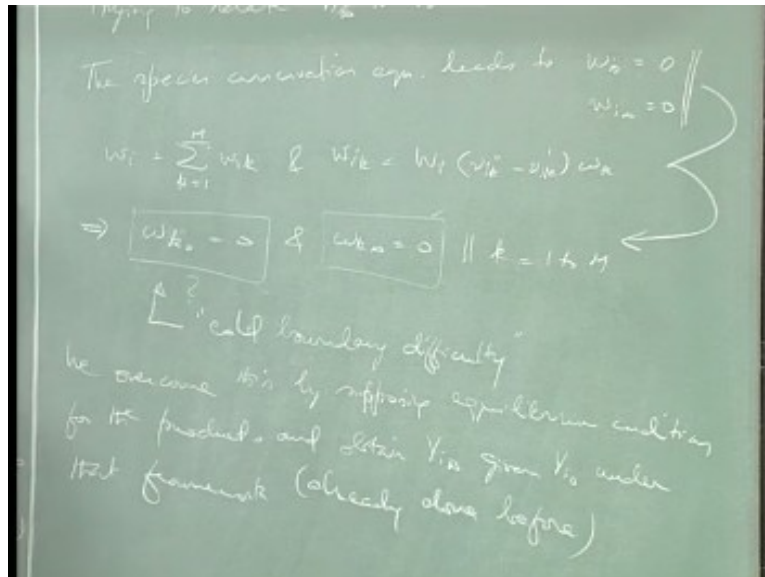 Trying to relate
The species conservation eqn. leads to w_{i0} = 0
w_{i∞} = 0
w_i = \sum_{k=1}^{M} w_{ik} & w_{ik} = W_i (ν_{ik}'' - ν_{ik}') ω_k
⇒ ω_{k0} = 0 & ω_{k∞} = 0 || k = 1 to M
? "cold boundary difficulty"
We overcome this by supposing equilibrium condition
for the products and obtain Y_{i∞} given Y_{i0} under
that framework (already done before)